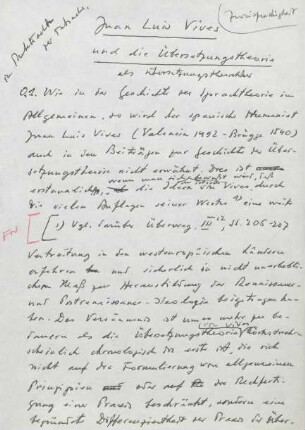 Juan Luis Vives
und die Übersetzungstheorie
als
0.1. Wie in der Geschichte der Sprachtheorie im
Allgemeinen, so wird der spanische Humanist
Juan Luis Vives (Valencia 1492 - Brügge 1540)
auch in den Beiträgen zur Geschichte der Über-
setzungstheorie nicht erwähnt. Dies ist
erstaunlich, wenn man daß
die Ideen von Vives durch
die vielen Auflagen seiner Werke 1) eine weite
FN [ 1) Vgl. darüber Überweg, III 12, SS. 206-207
Verbreitung in den westeuropäischen Ländern
erfuhren und sicherlich in nicht unerheblichem
Maß zur Herausbildung der Renaissance-
und Postrenaissance-Ideologie beigetragen ha-
ben. Das Versäumnis ist um so mehr zu be-
dauern als die Übersetzungstheorie von Vives höchstwahr-
scheinlich chronologisch die erste ist, die sich
nicht auf die Formulierung von allgemeinen
Prinzipien oder auf die Rechtferti-
gung einer Praxis beschränkt, sondern eine
begründet Differenziertheit der Praxis der Über-